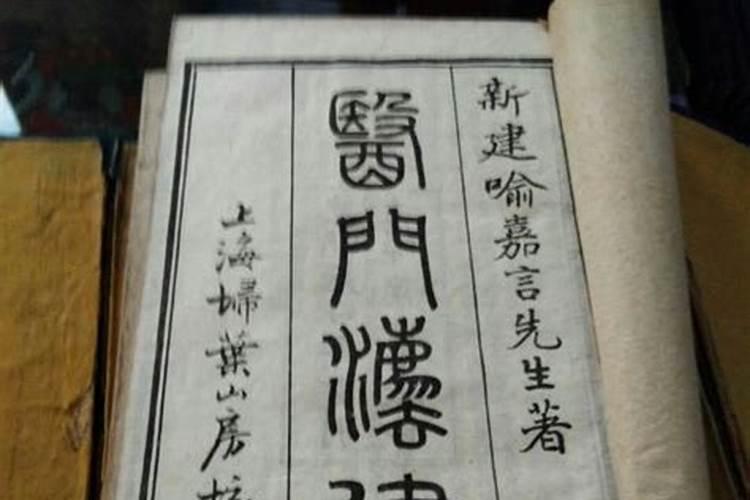 新建喻嘉言先生著
醫門灋律
上海埽葉山房